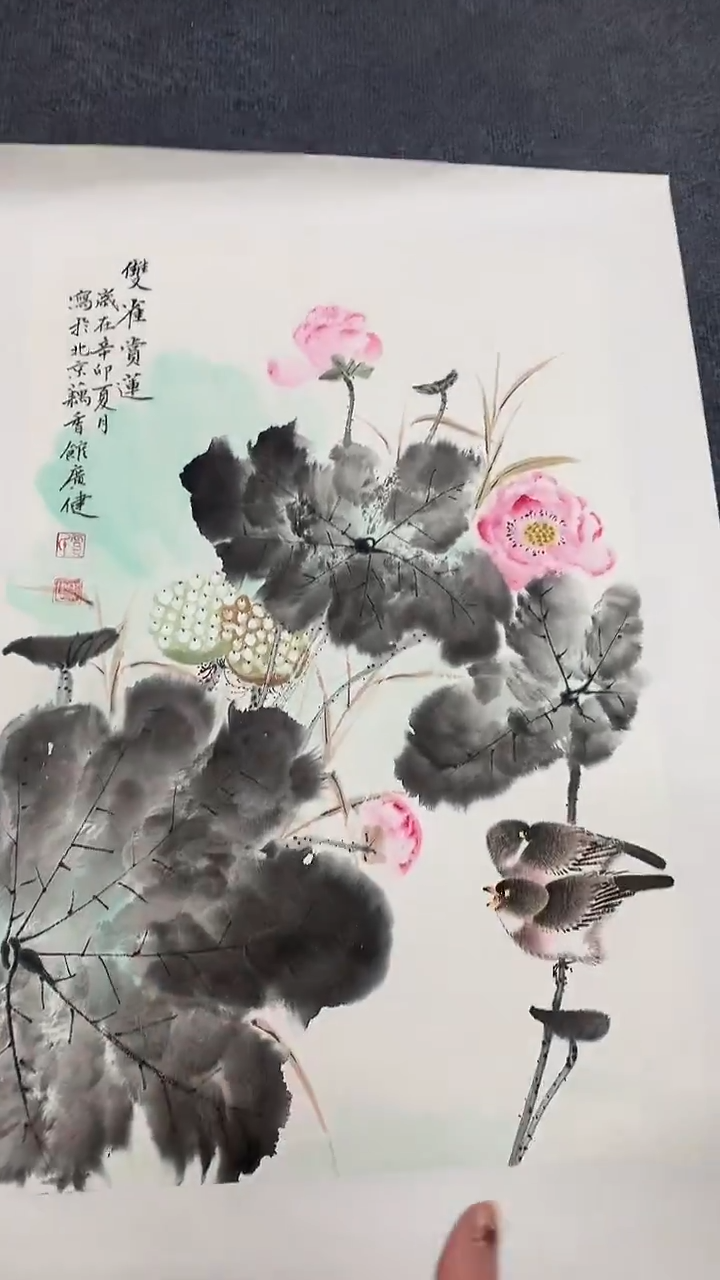 雙雀賞蓮
歲在辛卯夏月
寫於北京藕香館廣健